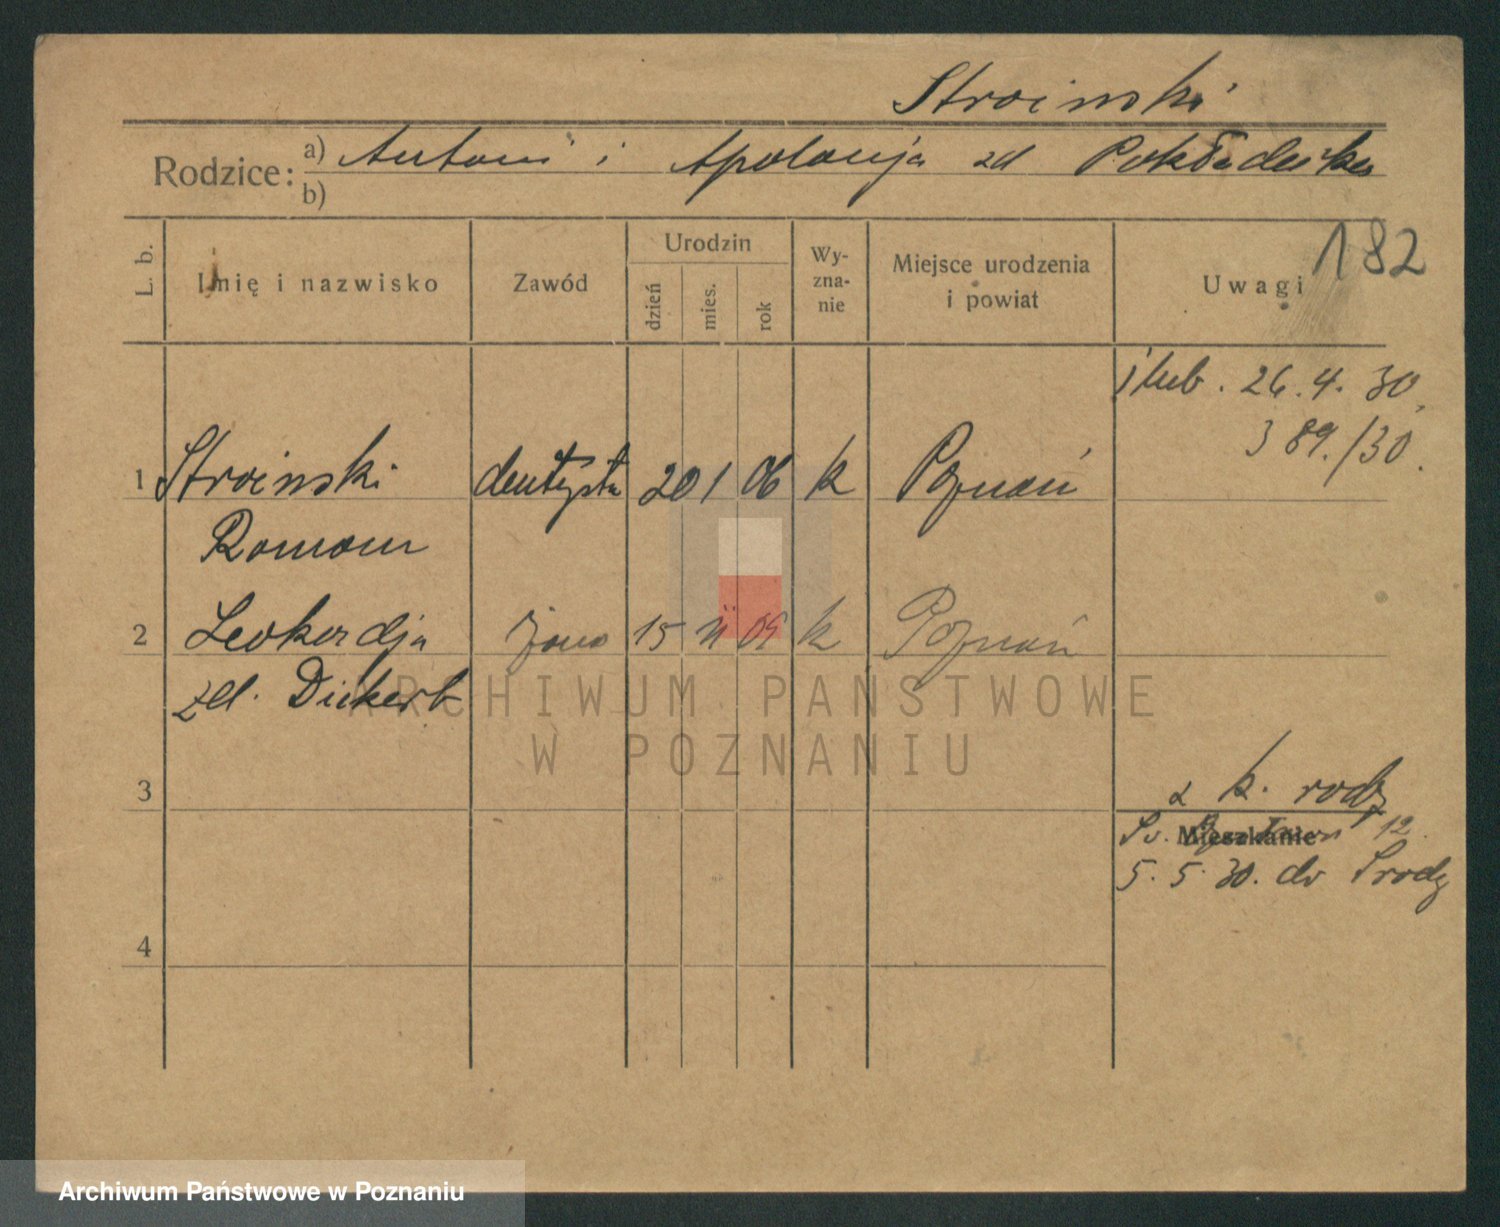 Stroinski
Rodzice:
a) Antoni i Apolonja zd
b)
L. b.
Imię i nazwisko
Zawód
Urodzin
dzień
mies.
rok
Wy-
zna-
nie
Miejsce urodzenia
i powiat
Uwagi
182
ślub. 26. 4. 30.
389./30.
1 Stroinski dentysta 20 1 06 k Poznań
Roman
2 Leokordja żona 15 k Poznań
zd. Dickert
ARCHIWUM PAŃSTWOWE
W POZNANIU
3
k. rodz
Św. 12
Mieszkanie
5. 5. 30. do Środy
4
Archiwum Państwowe w Poznaniu